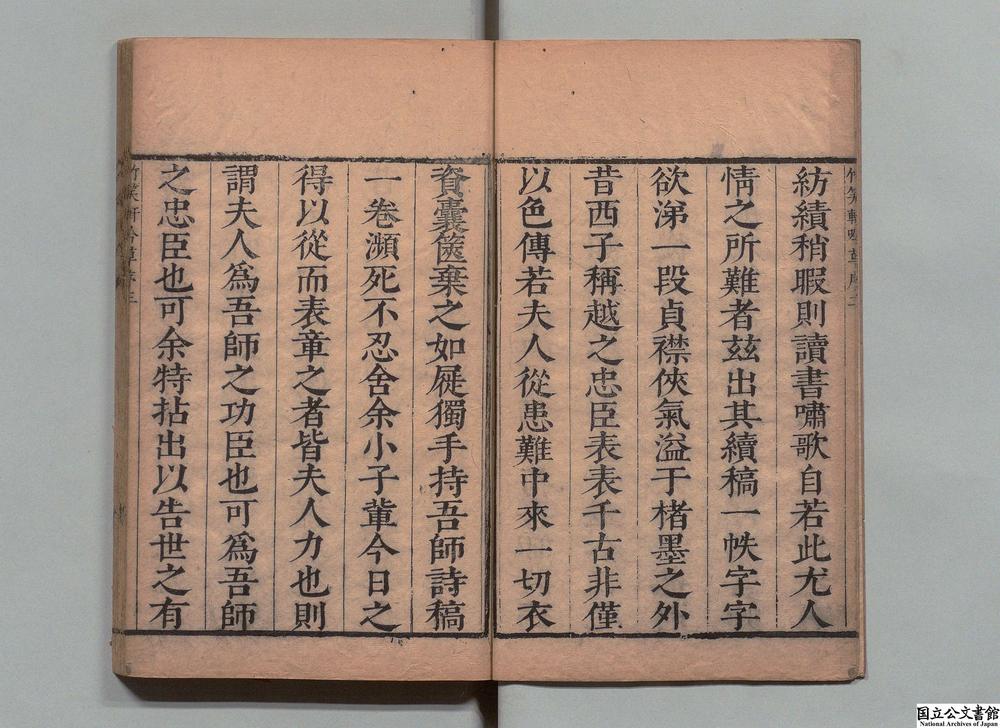 紡績稍暇則讀書嘯歌自若此尤人
情之所難者茲出其續稿一帙字字
欲涕一段貞襟俠氣溢于楮墨之外
昔西子稱越之忠臣表表千古非僅
以色傳若夫人從患難中來一切衣
資囊篋棄之如屣獨手持吾師詩稿
一卷瀕死不忍舍余小子輩今日之
得以從而表章之者皆夫人力也則
謂夫人爲吾師之功臣也可爲吾師
之忠臣也可余特拈出以告世之有
竹笑軒吟草序三
国立公文書館
National Archives of Japan